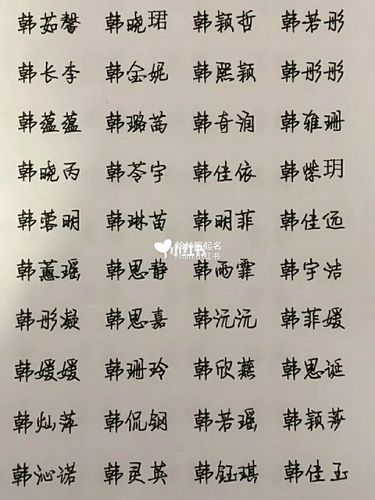 韩茹馨 韩晓珺 韩颖哲 韩若彤
韩长李 韩金妮 韩熙颖 韩彤彤
韩蕴蕴 韩璐茜 韩奇润 韩雅珊
韩晓丙 韩苓宇 韩佳依 韩紫玥
韩蓉明 韩琳苗 韩明菲 韩佳远
起名
小红书
韩蕙瑶 韩思静 韩雨霏 韩宇洁
韩彤凝 韩思嘉 韩沅沅 韩菲媛
韩媛媛 韩珊玲 韩欣燕 韩思诞
韩灿萍 韩侃钢 韩若瑶 韩颖莎
韩沁诺 韩灵英 韩钰琪 韩佳玉